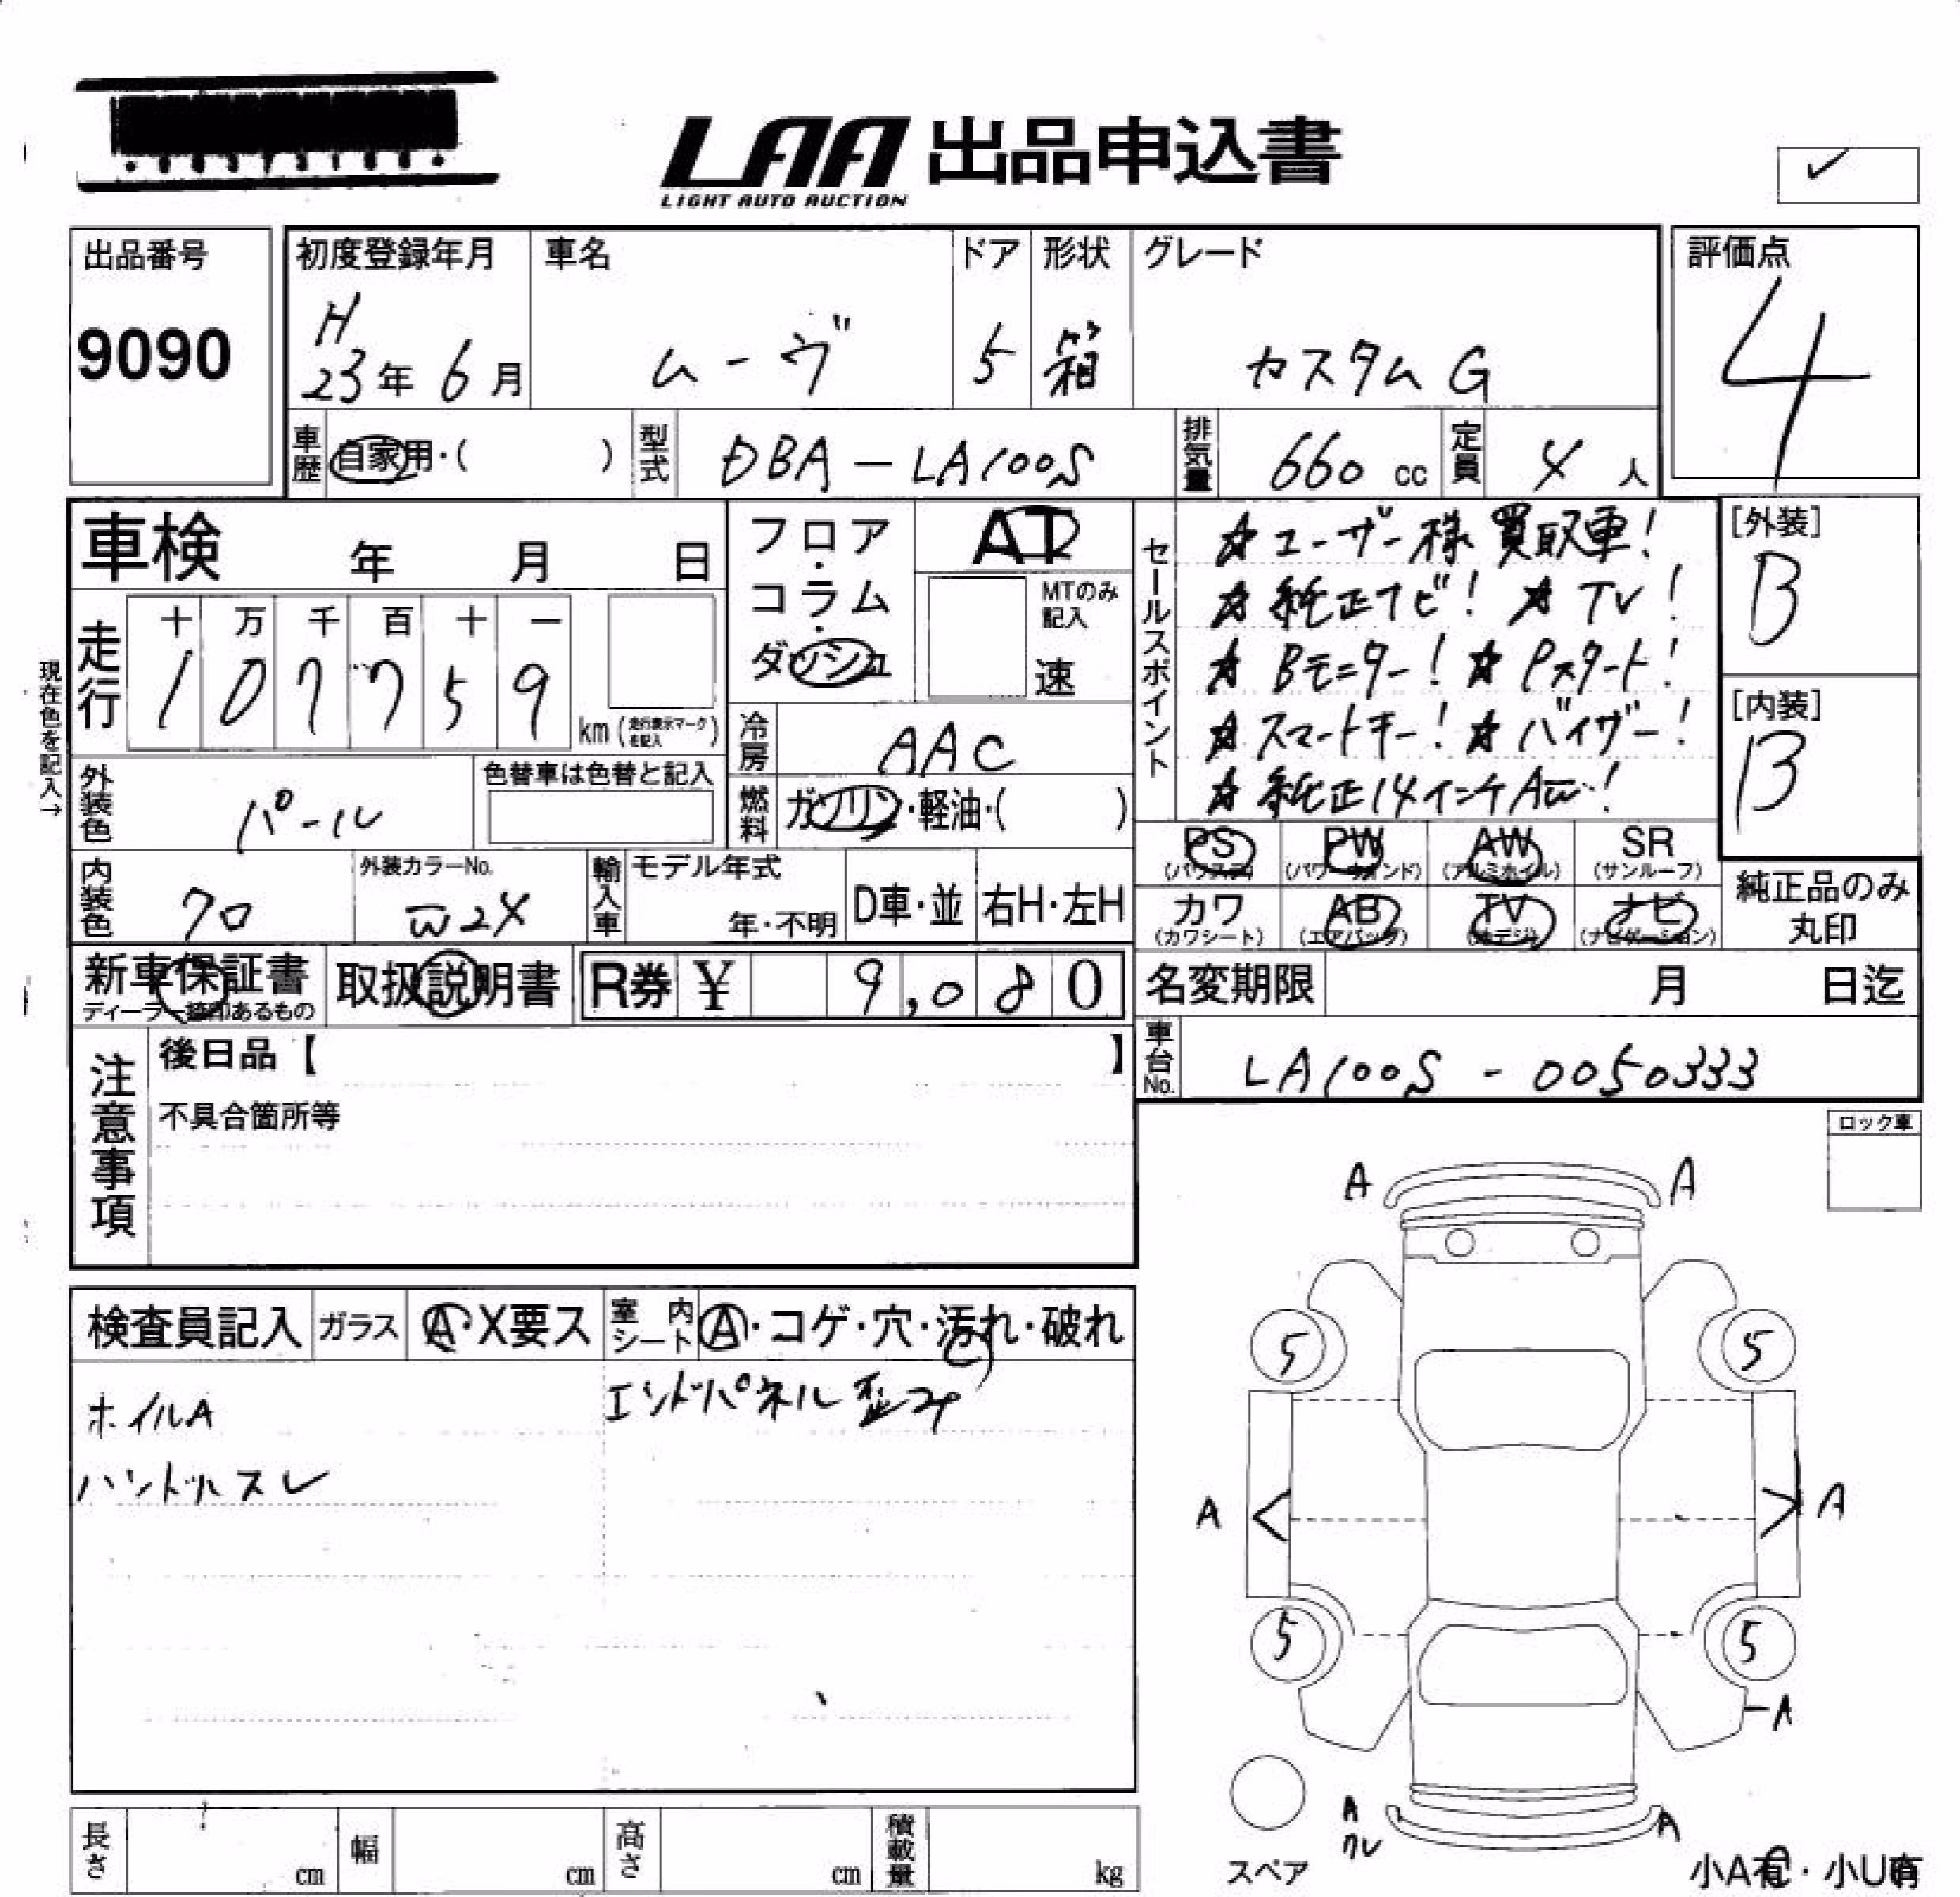 LAA 出品申込書
LIGHT AUTO AUCTION
出品番号
9090
初度登録年月
H
23年 6月
車名
ムーヴ
ドア
5
形状
箱
グレード
カスタム G
評価点
4
車歴
自家用・( )
型式
DBA-LA100S
排気量
660 cc
定員
4人
車検 年 月 日
フロア・コラム・ダッシュ
AT
MTのみ記入
速
セールスポイント
☆ユーザー様 買取車!
☆純正ナビ! ☆TV!
☆Bモニター! ☆Pスタート!
☆スマートキー! ☆バイザー!
☆純正14インチAW!
[外装]
B
[内装]
B
現在色を記入→
走行
十 万 千 百 十 一
1 0 7 7 5 9
km (走行表示マークを記入)
冷房
AAC
外装色
パール
色替車は色替と記入
燃料
ガソリン・軽油・( )
PS (パワステ)
PW (パワーウインド)
AW (アルミホイル)
SR (サンルーフ)
カワ (カワシート)
AB (エアバッグ)
TV (地デジ)
ナビ (ナビゲーション)
純正品のみ丸印
内装色
クロ
外装カラーNo.
W24
輸入車
モデル年式
年・不明
D車・並
右H・左H
新車保証書
ディーラー捺印あるもの
取扱説明書
R券 ¥ 9,080
名変期限 月 日迄
車台No.
LA100S - 0050333
注意事項
後日品【 】
不具合箇所等
ロック車
検査員記入
ガラス
A・X要ス
室内シート
A・コゲ・穴・汚れ・破れ
ホイルA
エンドパネル歪み
ハンドルスレ
A
A
5
5
A
A
5
5
A
A
クレ
A
スペア
小A有・小U有
長さ cm
幅 cm
高さ cm
積載量 kg